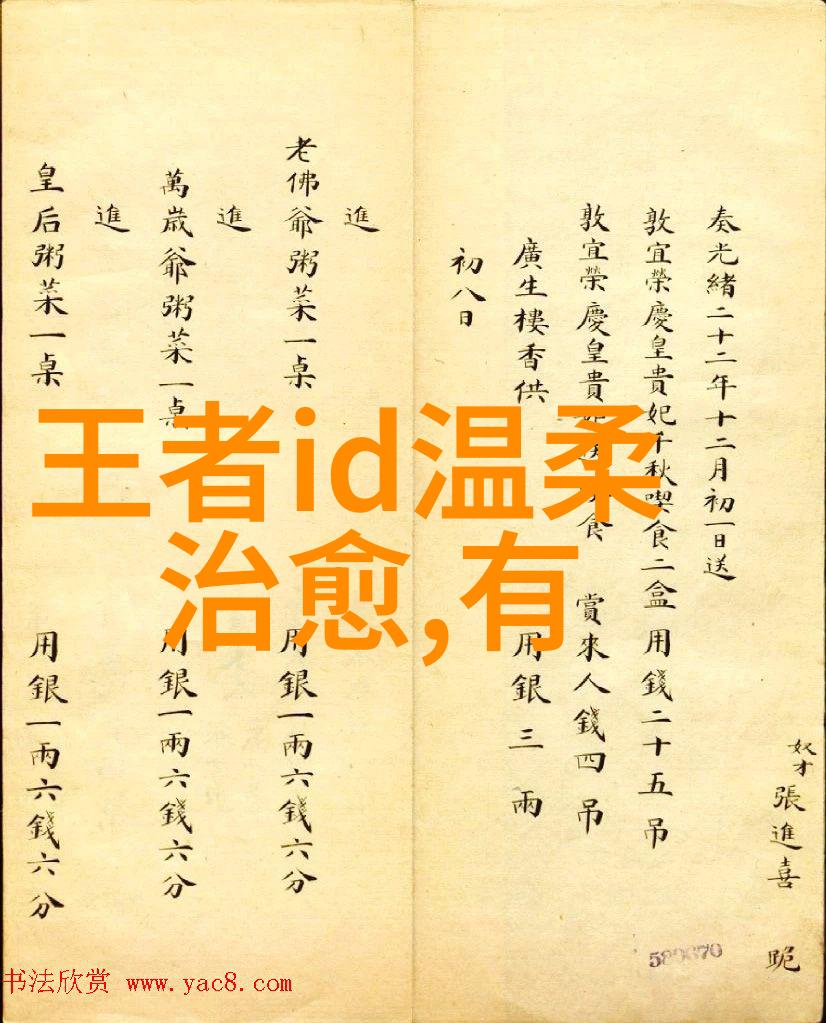 奴才張進喜 跪
奏光緒二十二年十二月初一日送
敦宜榮慶皇貴妃千秋喫食二盒用錢二十五吊
敦宜榮慶皇貴 食 賞來人錢四吊
廣生樓香供 用銀三兩
初八日
進
老佛爺粥菜一桌 用銀一兩六錢六分
進
萬歲爺粥菜一桌 用銀一兩六錢六分
進
皇后粥菜一桌 用銀一兩六錢六分
王者id温柔
治愈,有
书法欣赏 www.yac8.com